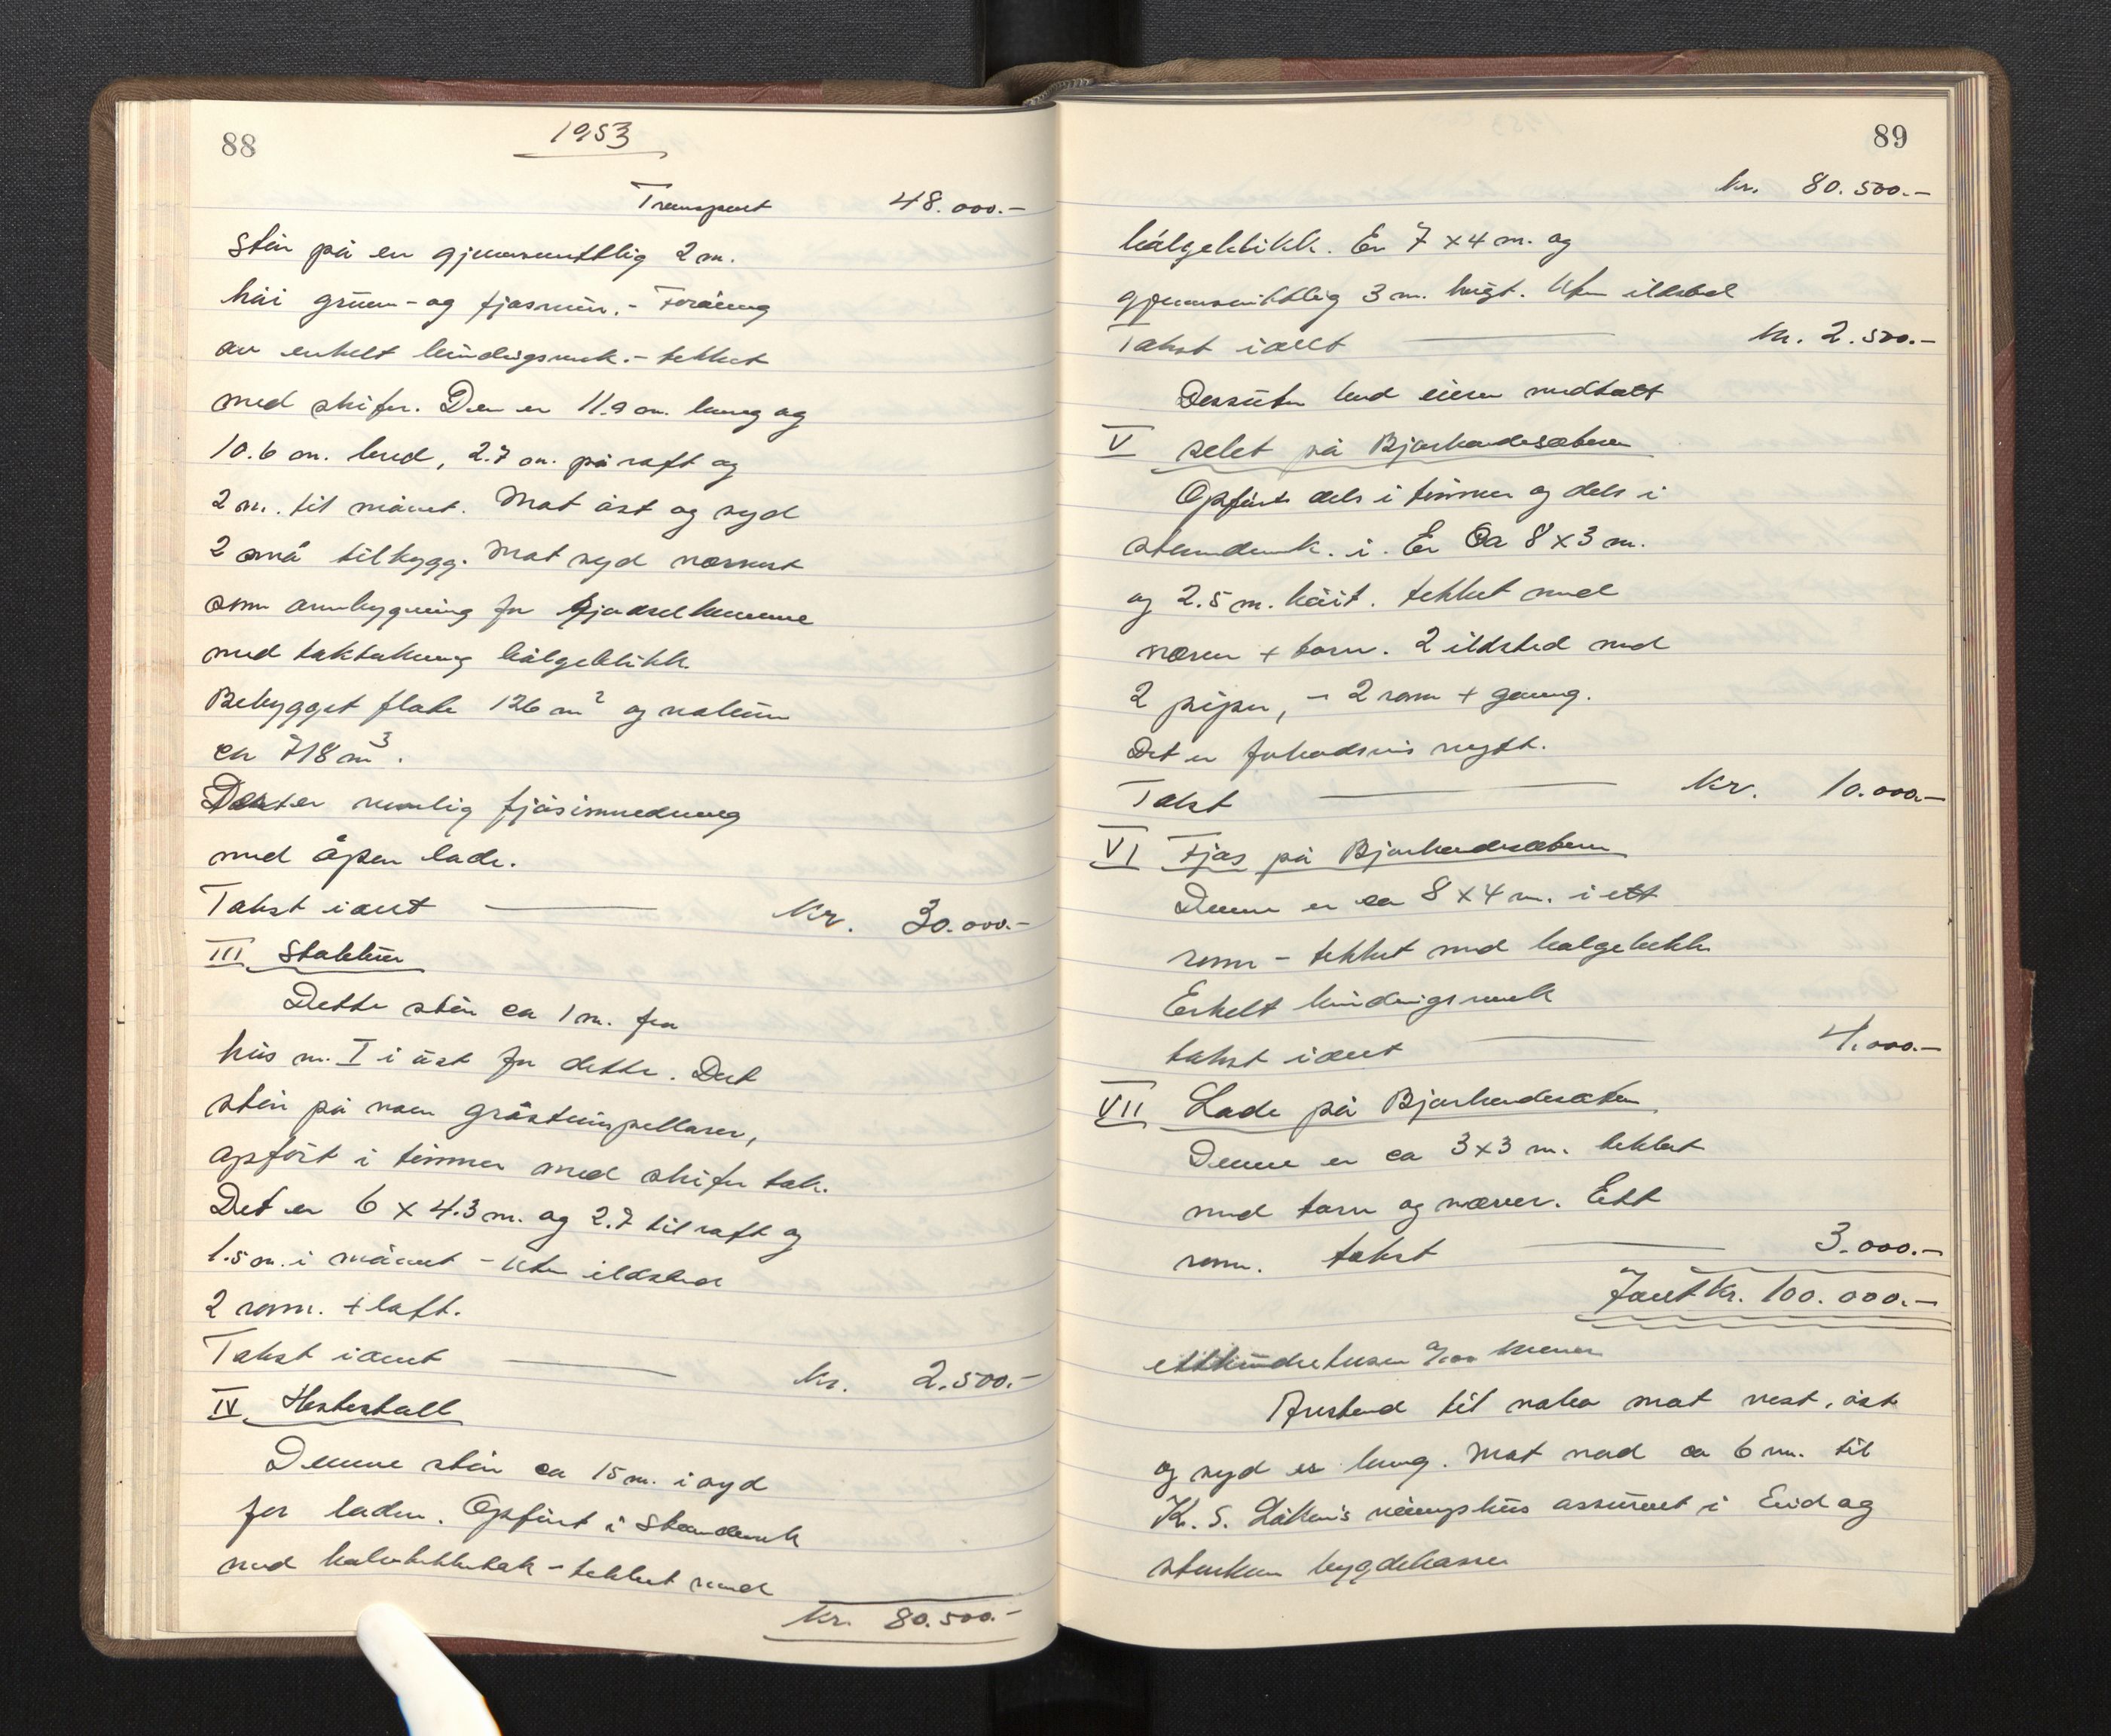 88
1953
Transport 48.000.-
står på en gjennomsnittlig 2 m.
høi grunn- og fjøsmur. -
av enkelt bindingsverk. - tekket
med skifer. Den er 11.9 m. lang og
10.6 m. bred, 2.7 m. på raft og
2 m. til mønet. Mot øst og syd
2 små tilbygg. Mot syd nærmest
som ombygning for gjødselkummene
med taktekning bølgeblikk.
Bebygget flate 126 m² og volum
ca 718 m³.
Det er vanlig fjøsinnredning
med åpen lade.
Takst i alt — Kr. 30.000.-
III Stabbur
Dette står ca 1 m. fra
hus nr. I i øst for dette. Det
står på noen gråsteinspellarer,
opført i tømmer med skifer tak.
Det er 6 x 4.3 m. og 2.7 til raft og
1.5 m. i mønet - Uten ildsted
2 rom. + loft.
Takst i alt — kr. 2.500.-
IV Hestestall
Denne står ca 15 m. i syd
for laden. Opført i standverk
med tekket med
kr. 80.500.-
89
kr. 80.500.-
bølgeblikk. Er 7 x 4 m. og
gjennomsnittlig 3 m. høgt. Uten ildsted
Takst i alt — kr. 2.500.-
Dessuten hadde eieren medtatt
V selet på Bjørkendesæteren
Opført dels i tømmer og dels i
standverk. i. Er Ca 8 x 3 m.
og 2.5 m. høit. tekket med
never + torv. 2 ildsted med
2 piper, - 2 rom + gang.
Det er forholdsvis nytt.
Takst — Kr. 10.000.-
VI Fjøs på Bjørkendesæteren
Denne er ca 8 x 4 m. i ett
rom - tekket med bølgeblikk
Enkelt bindingsverk
takst i alt — 4.000.-
VII Lade på Bjørkendesæteren
Denne er ca 3 x 3 m. tekket
med torv og never. Ett
rom. takst — 3.000.-
I alt Kr. 100.000.-
etthundretusen 0/100 kroner
Avstand til nabo mot vest, øst
og syd er lang. Mot nord ca 6 m. til
K. S. Løken's våningshus assurert i Eid og
bygdekasser